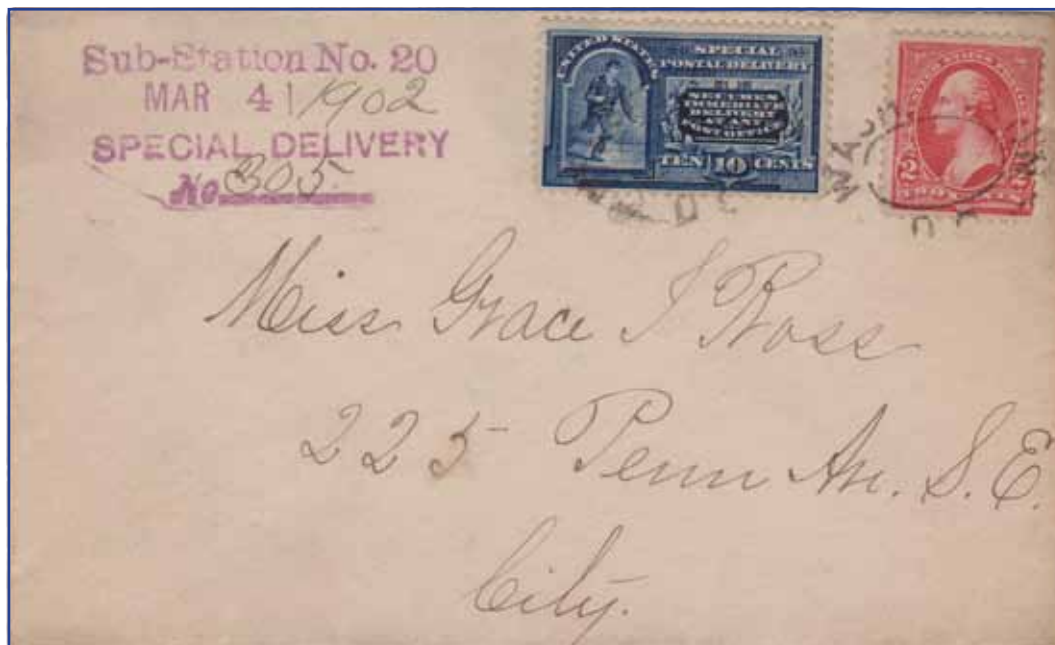 Sub-Station No. 20
MAR 4 1902
SPECIAL DELIVERY
No 305.
UNITED STATES
SPECIAL
POSTAL DELIVERY
SECURES
IMMEDIATE
DELIVERY
AT ANY
POST OFFICE
TEN 10 CENTS
2 2
Miss Grace I Ross
225 Penn Av. S.E.
City.